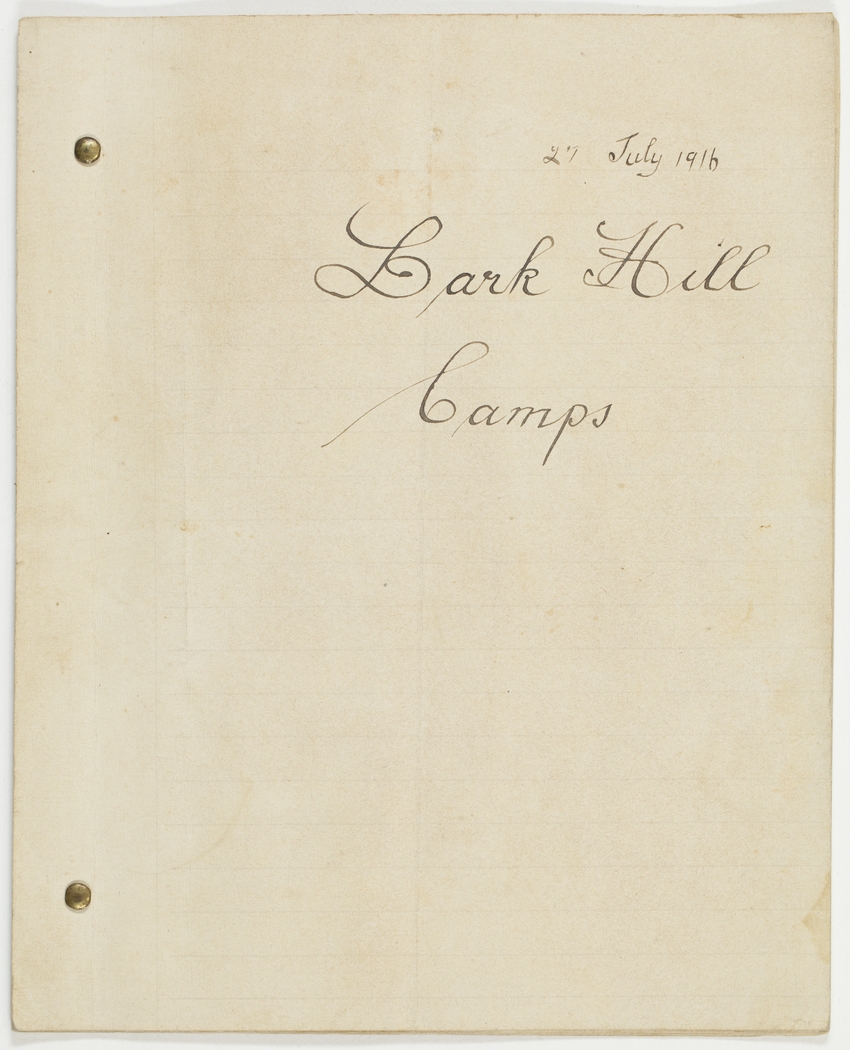 27 July 1916
Lark Hill
Camps